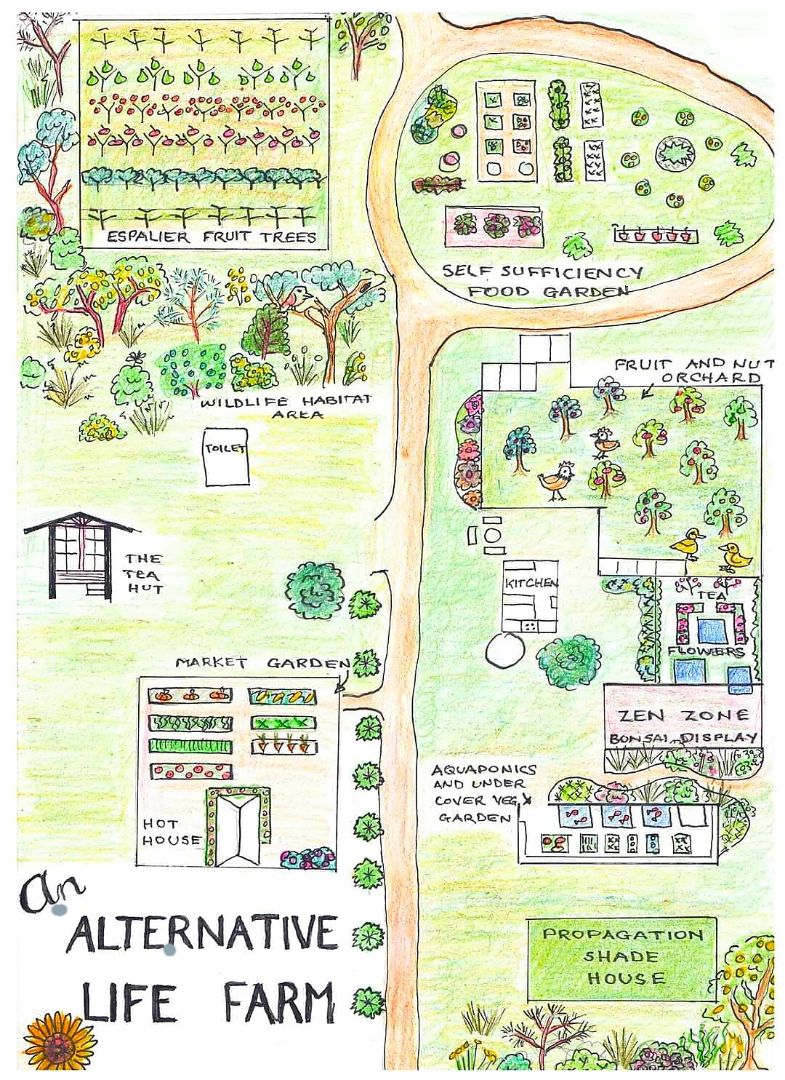 ESPALIER FRUIT TREES
SELF SUFFICIENCY
FOOD GARDEN
FRUIT AND NUT
ORCHARD
WILDLIFE HABITAT
AREA
TOILET
THE
TEA
HUT
KITCHEN
TEA
FLOWERS
MARKET GARDEN
ZEN ZONE
BONSAI DISPLAY
AQUAPONICS
AND UNDER
COVER VEG
GARDEN
HOT
HOUSE
An
ALTERNATIVE
LIFE FARM
PROPAGATION
SHADE
HOUSE